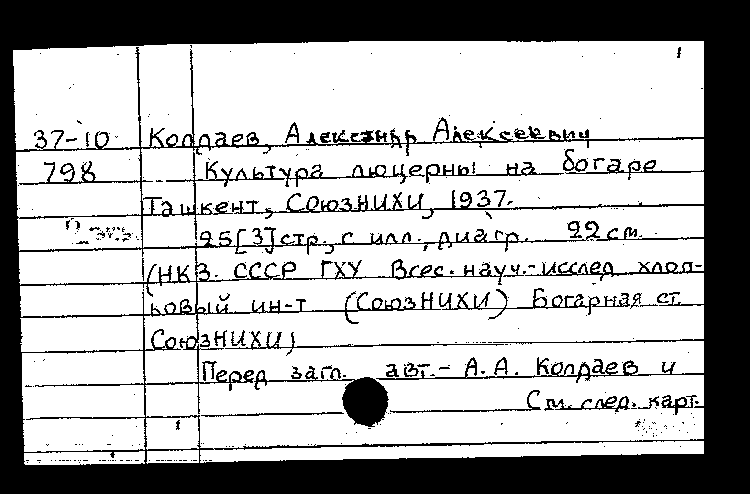 37-10 Колдаев, Александр Алексеевич
798 Культура люцерны на богаре
Ташкент, СоюзНИХИ, 1937.
2 экз.
25[3]стр., с илл., диагр. 22 см.
(НКЗ. СССР ГХУ Всес. науч.-исслед хлоп-
ковый ин-т (СоюзНИХИ) Богарная ст.
СоюзНИХИ)
Перед загл. авт. - А.А. Колдаев и
См. след. карт.